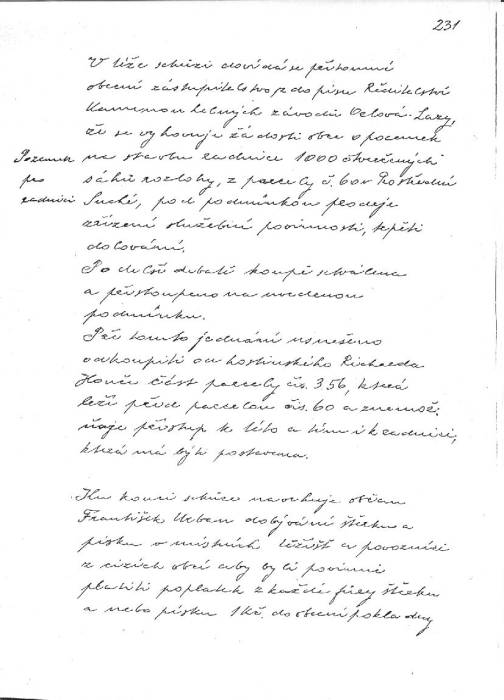 231
V téže schůzi dovídá se přítomné
obecní zastupitelstvo z dopisu Ředitelství
Kamenouhelných závodů Orlová-Lazy,
že se vyhovuje žádosti obce o pozemek
Pozemek
pro
radnici
na stavbu radnice 1000 čtverečných
sáhů rozlohy, z parcely č. 60 v Prostřední
Suché, pod podmínkou prodeje
zřízení služební povinnosti, trpěti
dolování.
Po delší debatě koupě schválena
a přistoupeno na uvedenou
podmínku.
Při tomto jednání usneseno
odkoupiti od hostinského Richarda
část parcely čís. 356, která
leží před parcelou čís. 60 a znemož-
ňuje přístup k této a tím i k radnici,
která má býti postavena.
Ku konci schůze navrhuje občan
František Urban dobývání štěrku a
písku v místních ložišť a povozníci
z cizích obcí aby byli povinni
platiti poplatek z každé fůry štěrku
a nebo písku 1 Kč. do obecní pokladny